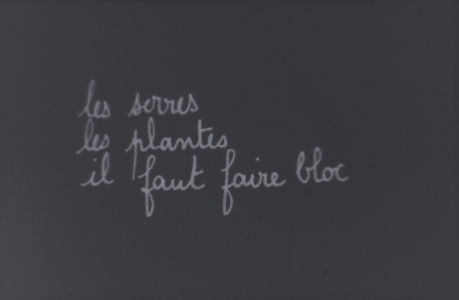 les serres
les plantes
il faut faire bloc